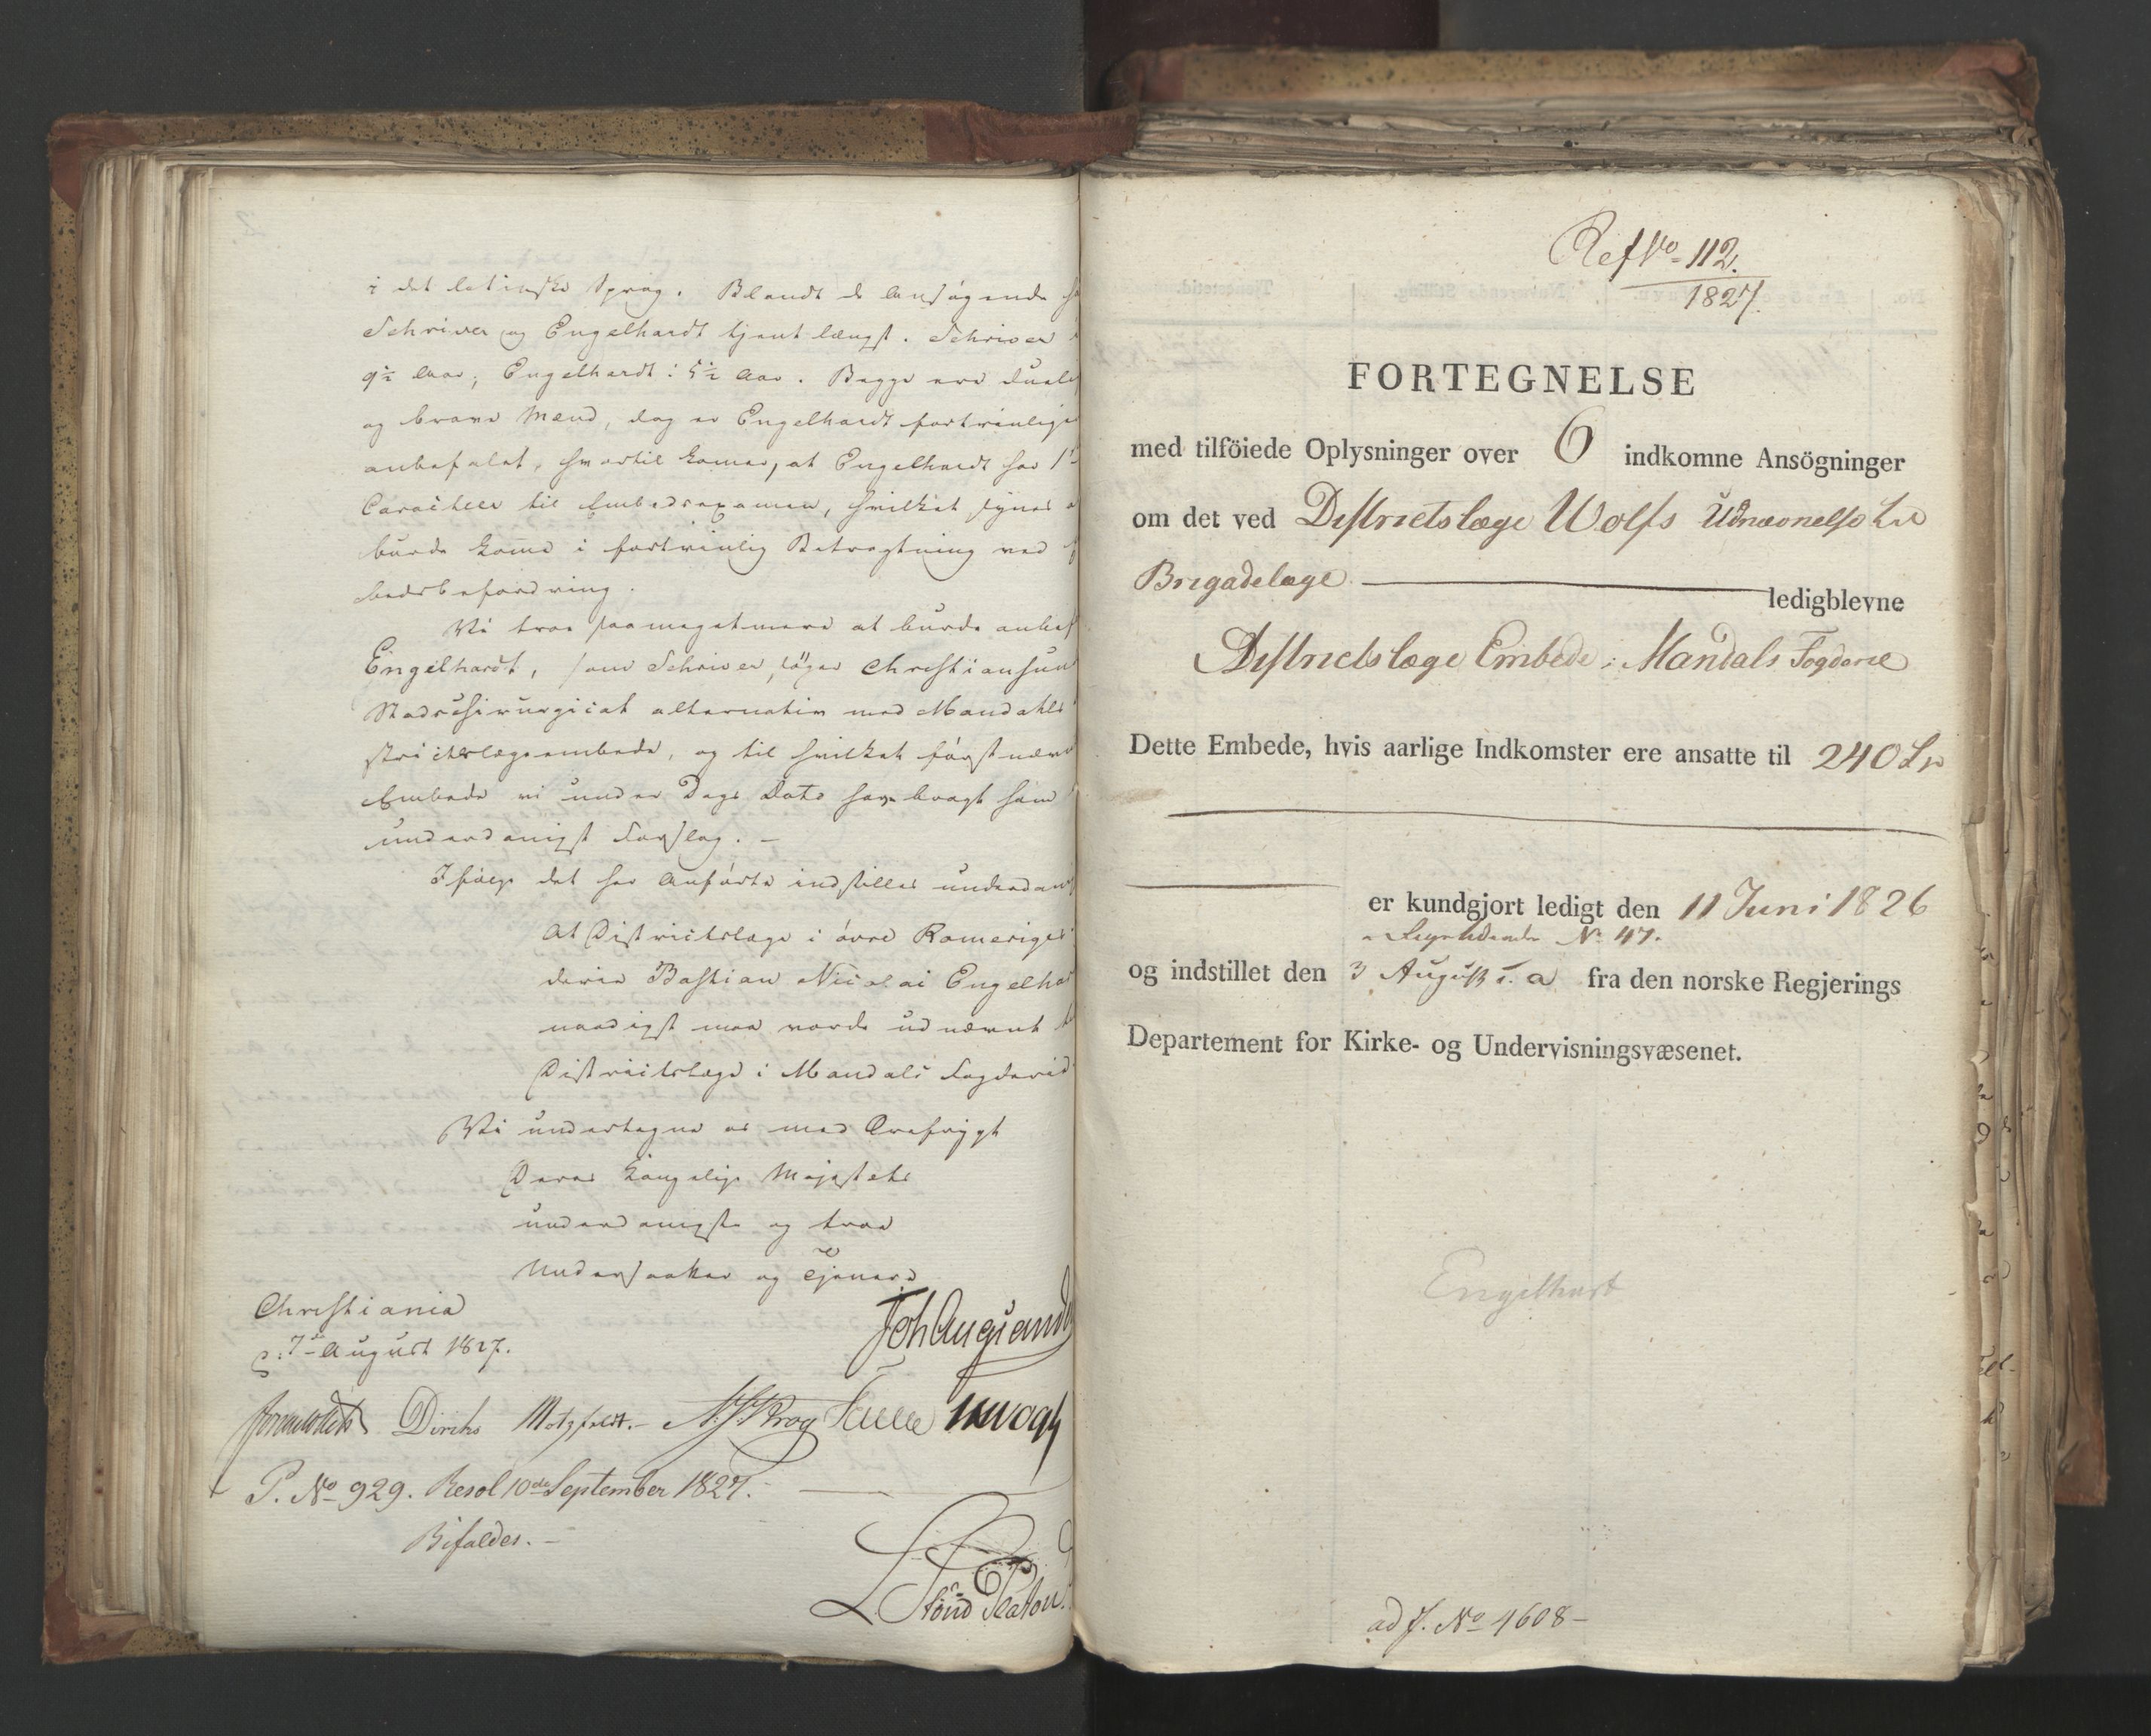 i det latinske Sprog. Blandt de Ansøgende
Schriver og Engelhardt tjent længst. Schriver
9½ Aar, Engelhardt i 5½ Aar. Begge ere duelige
og brave Mænd, dog er Engelhardt fortrinlige
anbefalet, hvortil komer, at Engelhardt har 1ste
Caracteer til Embedsexamen, hvilket synes
burde kome i fortrinlig Betragtning ved
bedsbefordring.
Vi troe saameget mere at burde anbef
Engelhardt, som Schriver, søger Christiansun
Stadschirurgicat alternativ med Mandahls
strictslægeembede, og til hvilket førstnævn
Embede vi under Dags Dato have bragt ham
underdanigst Forslag. –
Ifølge det her Anførte indstilles underdan
At Districtslæge i øvre Romeriges
derie Bastian Nicolai Engelha
naadigst maa vorde udnævnt
Districtslæge i Mandals Fogderie
Vi undertegne os med Ærefrygt
Deres Kongelige Majestæts
underdanigste og troe
Undersaatter og Tjenere
Christiania
d: 7de August 1827.
Diriks Motzfeldt. Krog Vogt
P. No 929. Resol 10de September 1827. –
Bifaldes. –
Ref No 112.
1827.
FORTEGNELSE
med tilföiede Oplysninger over 6 indkomne Ansögninger
om det ved Districtslæge Wolfs Udnævnelse til
Brigadelæge — ledigblevne
Districtslæge Embede i Mandals Fogderie
Dette Embede, hvis aarlige Indkomster ere ansatte til 240
er kundgjort ledigt den 11 Juni 1826
No 47.
og indstillet den 3 August d. a fra den norske Regjerings
Departement for Kirke- og Undervisningsvæsenet.
Engelhart
ad J. No 4608 –